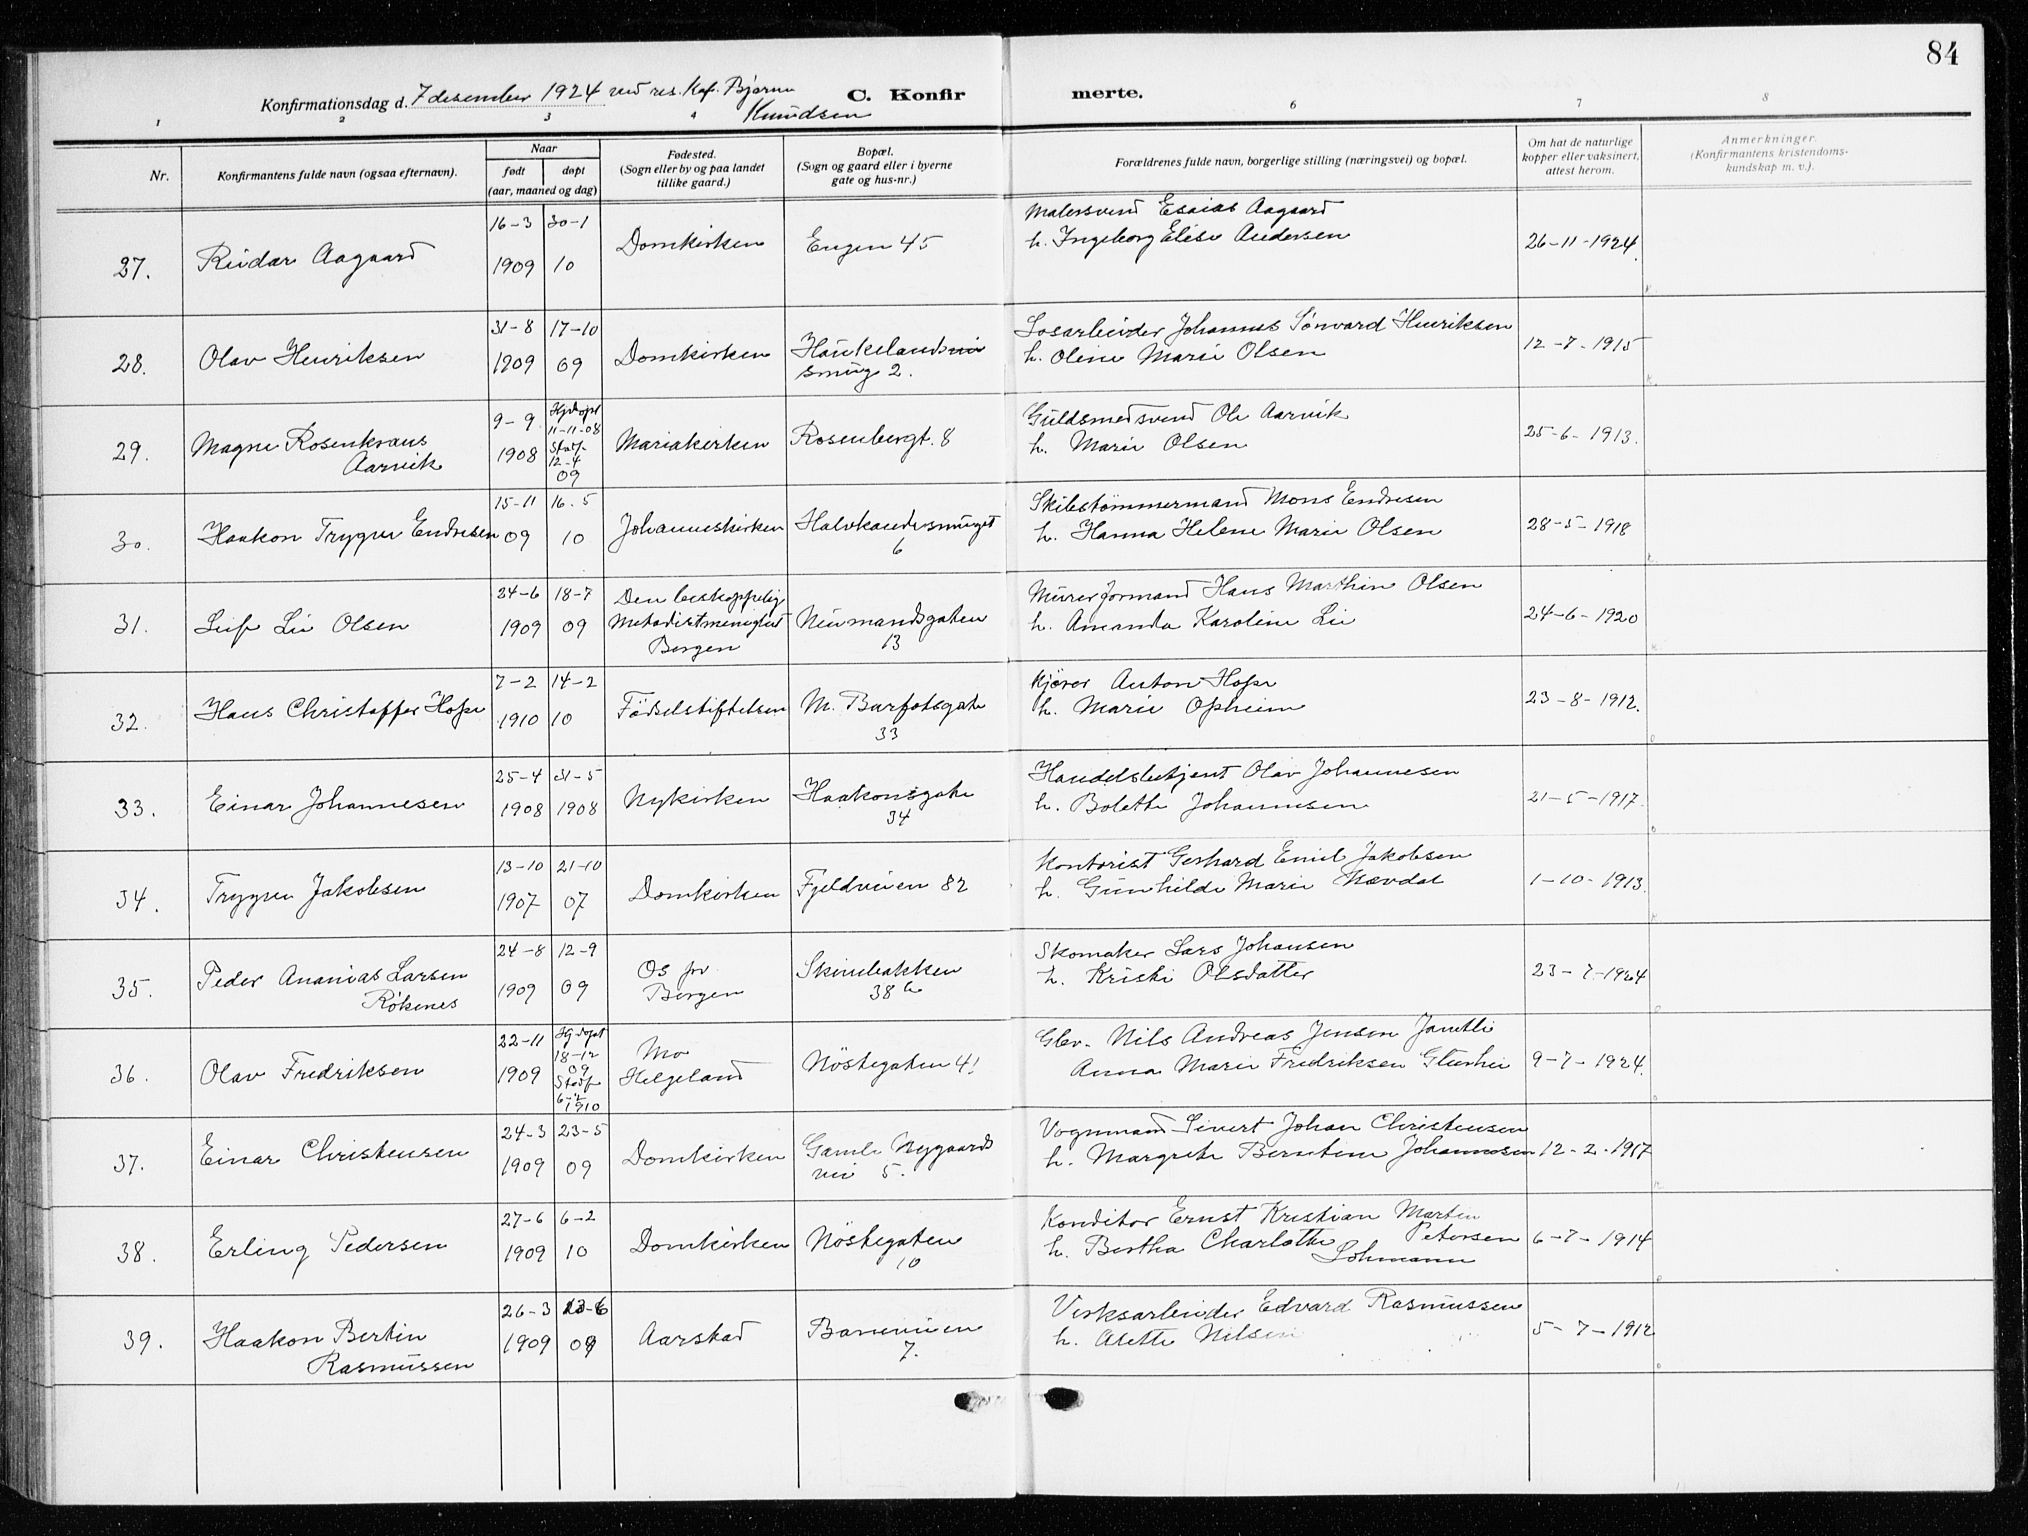 84
Konfirmationsdag d. 7 desember 1924 ved res. Kap. Bjarne Knudsen
C. Konfirmerte.
1 2 3 4 6 7 8
Nr. | Konfirmantens fulde navn (ogsaa efternavn). | Naar født døpt (aar, maaned og dag) | Fødested. (Sogn eller by og paa landet tillike gaard.) | Bopæl. (Sogn og gaard eller i byerne gate og hus-nr.) | Forældrenes fulde navn, borgerlige stilling (næringsvei) og bopæl. | Om hat de naturlige kopper eller vaksinert, attest herom. | Anmerkninger. (Konfirmantens kristendomskundskap m. v.).
27. | Reidar Aagaard | 16-3 1909 | 30-1 10 | Domkirken | Engen 45 | Malersvend Esaias Aagaard h. Ingeborg Elise Andersen | 26-11-1924.
28. | Olav Henriksen | 31-8 1909 | 17-10 09 | Domkirken | Haukelandsvei smug 2. | Losarbeider Johannes Sönvard Henriksen h. Oline Marie Olsen | 12-7-1915
29. | Magne Rosenkrans Aarvik | 9-9 1908 | Hjdøpt 11-11-08 Stadf. 12-4 09 | Mariakirken | Rosenbergt. 8 | Guldsmedsvend Ole Aarvik h. Marie Olsen | 25-6-1913.
30. | Haakon Trygve Endresen | 15-11 09 | 16-5 10 | Johanneskirken | Halvkandesmuget 6 | Skibstømmermand Mons Endresen h. Hanna Helene Marie Olsen | 28-5-1918
31. | Leif Lie Olsen | 24-6 1909 | 18-7 09 | Den beskoppelig Metodistmenighet Bergen | Neumandsgaten 13 | Murerformand Hans Marthin Olsen h. Amanda Karoline Lie | 24-6-1920
32. | Hans Christoffer Hope | 7-2 1910 | 14-2 10 | Födselstiftelsen | M. Barfotsgate 33 | Kjører Anton Hope h. Marie Opheim | 23-8-1912.
33. | Einar Johannesen | 25-4 1908 | 31-5 1908 | Nykirken | Haakonsgate 34 | Handelsbetjent Olav Johannesen h. Bolette Johannesen | 21-5-1917.
34. | Trygve Jakobsen | 13-10 1907 | 21-10 07 | Domkirken | Fjeldveien 82 | Kontorist Gerhard Emil Jakobsen h. Gunhilde Marie Nævdal | 1-10-1913.
35. | Peder Ananias Larsen Røkenes | 24-8 1909 | 12-9 09 | Os pr. Bergen | Skivebakken 38 b | Skomaker Lars Johansen h. Kristi Olsdatter | 23-7-1924
36. | Olav Fredriksen | 22-11 1909 | Hjdøpt 18-12 09 Stadf 6-2 1910 | Mo Helgeland | Nöstegaten 41 | Nils Andreas Jensen Anna Marie Fredriksen | 9-7-1924.
37. | Einar Christensen | 24-3 1909 | 23-5 09 | Domkirken | Gamle Nygaards vei 5. | Vognmand Sivert Johan Christensen h. Margrete Berntine Johannesen | 12-2-1917
38. | Erling Pedersen | 27-6 1909 | 6-2 10 | Domkirken | Nöstegaten 10 | Konditor Ernst Kristian Martin Petersen h. Bertha Charlotte Lohmann | 6-7-1914
39. | Haakon Bertin Rasmussen | 26-3 1909 | 13-6 09 | Aarstad | Baneveien 7. | Verksarbeider Edvard Rasmussen h. Alette Nilsen | 5-7-1912